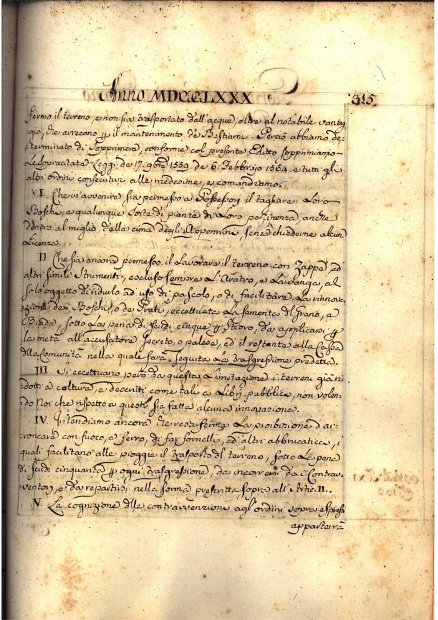 Anno MDCCLXXX
315.
fermo il terreno, e non sia trasportato dall'acque, oltre al notabile vantag
gio, che arrecano p il mantenimento de Bestiami. Perciò abbiamo de
terminato di sopprimere, conforme col presente Editto sopprimiamo
Le Sovracitate Leggi de 17. 9bre 1559. de 6. Febbrajo 1564. e tutti gli
altri ordini consecutivi alle medesime, e comandiamo.
VI. Che in avvenire sia permesso a Possessori il tagliare i Loro
Boschi, e qualunque sorte di piante di Loro pertinenza anche
dentro al meglio dalla cima degli Appennini senza chiederne alcuna
Licenza.
II. Che sia ancora permesso il lavorare il terreno con Zappa, ed
altri simili strumenti, escluso sempre l'Aratro, e La Vanga, al
solo oggetto di ridurlo ad uso di pascolo, o di facilitare La rinnova
zione dei Boschi, o de Prati, eccettuata La sementa di Grano, e
Biade, sotto La pena di scudi cinque p Staro, da applicarsi p
la metà all'accusatore segreto, o palese, ed il restante alla Cassa
della Comunità nella quale sarà seguita La trasgressione predetta.
III. Si eccettuano però da questa Limitazione i terreni già ri
dotti a coltura, e descritti come tali a Libri pubblici, non volen
do Noi che rispetto a questi sia fatta alcuna innovazione.
IV. Intendiamo ancora che resti ferma La proibizione di
roncare con fuoco, e ferro, di far fornelli, ed altri abbruciaticci, i
quali facilitano alle piogge il trasporto del terreno, sotto Le pene
di scudi cinquanta p ogni trasgressione, da incorrersi da Contrav
ventori, e da repartirsi nella forma prescritta sopra all'Artic. II.
V. La cognizione delle contravvenzioni agl'ordini sopra espressi
apparterrà